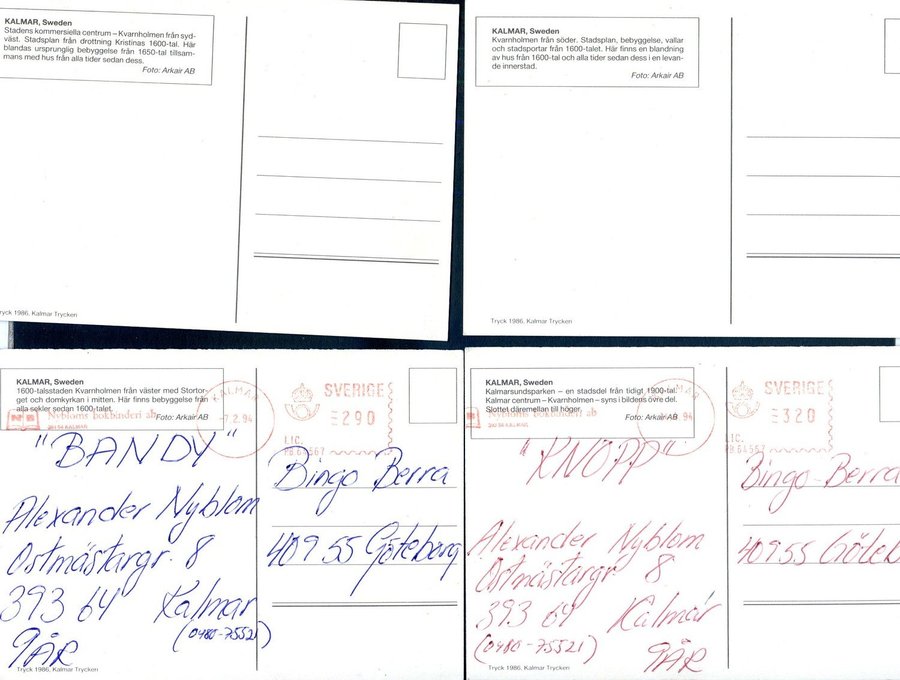 KALMAR, Sweden
Stadens kommersiella centrum – Kvarnholmen från syd-
väst. Stadsplan från drottning Kristinas 1600-tal. Här
blandas ursprunglig bebyggelse från 1650-tal tillsam-
mans med hus från alla tider sedan dess.
Foto: Arkair AB
ryck 1986, Kalmar Trycken
KALMAR, Sweden
Kvarnholmen från söder. Stadsplan, bebyggelse, vallar
och stadsportar från 1600-talet. Här finns en blandning
av hus från 1600-tal och alla tider sedan dess i en levan-
de innerstad.
Foto: Arkair AB
Tryck 1986, Kalmar Trycken
KALMAR, Sweden
1600-talsstaden Kvarnholmen från väster med Stortor-
get och domkyrkan i mitten. Här finns bebyggelse från
alla sekler sedan 1600-talet.
Foto: Arkair AB
Nybloms bokbinderi ab
KALMAR
7.2.94
SVERIGE
290
LIC.
PB.64567
"BANDY"
Alexander Nyblom
Ostmästargr. 8
393 64 Kalmar
(0480-75521)
9ÅR
Bingo Berra
409 55 Göteborg
Tryck 1986, Kalmar Trycken
KALMAR, Sweden
Kalmarsundsparken – en stadsdel från tidigt 1900-tal.
Kalmar centrum – Kvarnholmen – syns i bildens övre del.
Slottet däremellan till höger.
Foto: Arkair AB
Nybloms bokbinderi ab
KALMAR
.2.94
SVERIGE
320
LIC.
PB.64567
"KNOPP"
Alexander Nyblom
Ostmästargr 8
393 64 Kalmar
(0480-75521)
9ÅR
Bingo-Berra
409 55 Göteb
Tryck 1986, Kalmar Trycken